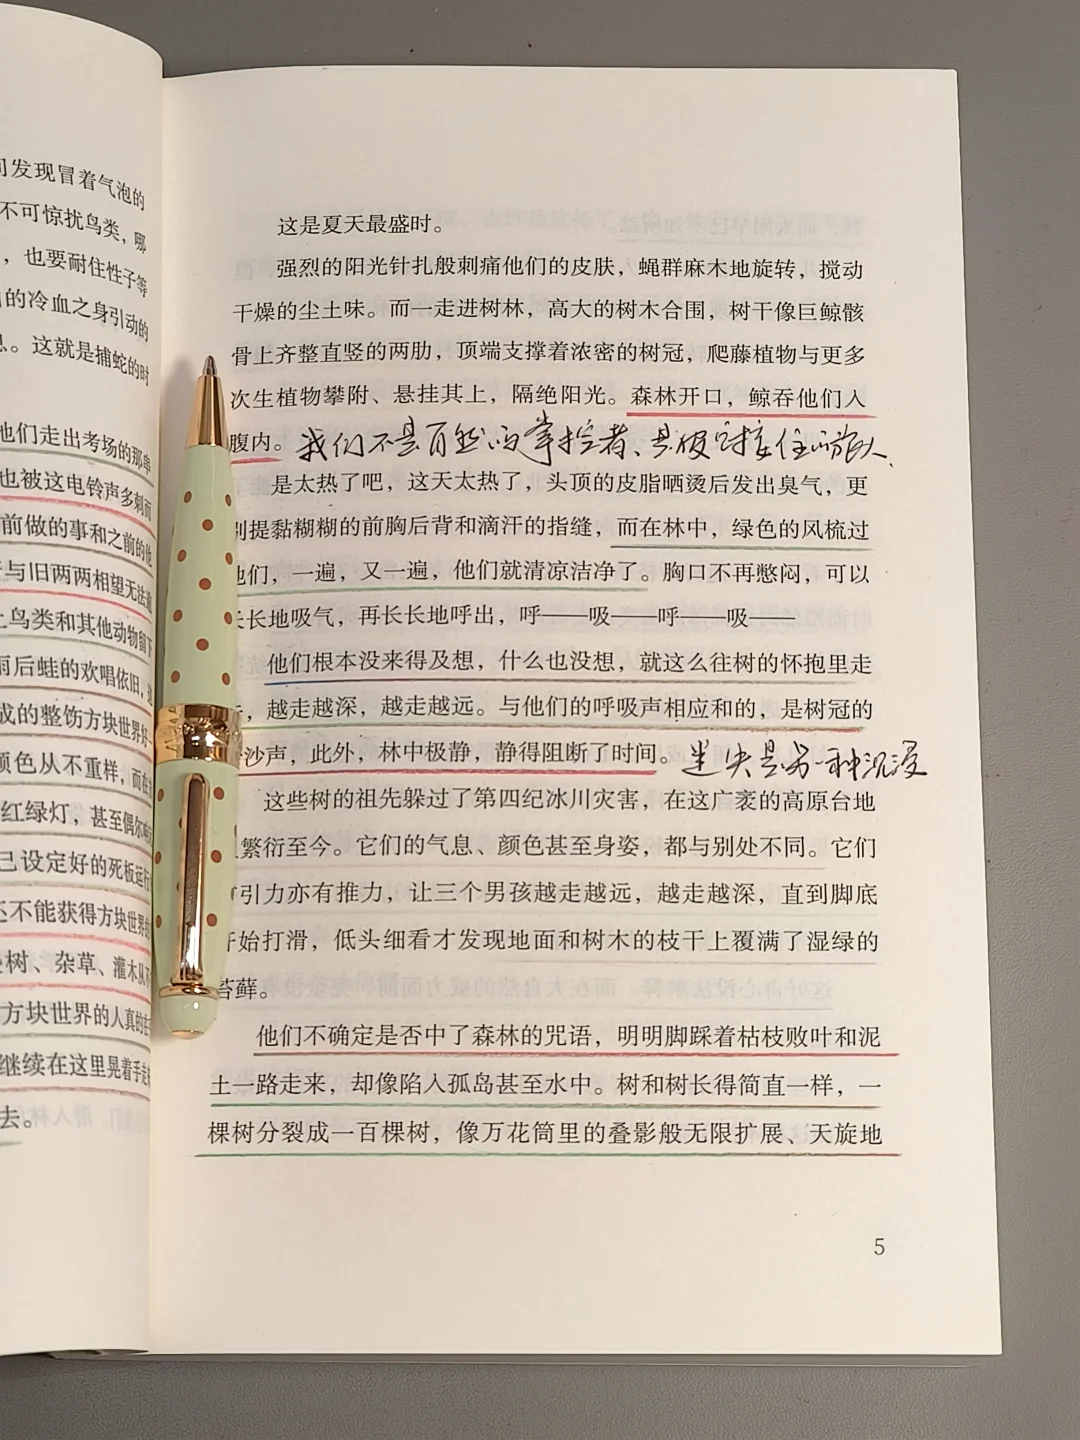 发现冒着气泡的
不可惊扰鸟类，哪
，也要耐住性子等
的冷血之身引动的
。这就是捕蛇的时
他们走出考场的那串
也被这电铃声多刺而
前做的事和之前的他
与旧两两相望无法逾
鸟类和其他动物留下
雨后蛙的欢唱依旧，
成的整饬方块世界好
颜色从不重样，而在
红绿灯，甚至偶尔
己设定好的死板运行
还不能获得方块世界
树、杂草、灌木从不
方块世界的人真的在
继续在这里晃着手走
去。
这是夏天最盛时。
强烈的阳光针扎般刺痛他们的皮肤，蝇群麻木地旋转，搅动
干燥的尘土味。而一走进树林，高大的树木合围，树干像巨鲸骸
骨上齐整直竖的两肋，顶端支撑着浓密的树冠，爬藤植物与更多
次生植物攀附、悬挂其上，隔绝阳光。森林开口，鲸吞他们入
腹内。我们不是自然的掌控者、是被它接住的旅人
是太热了吧，这天太热了，头顶的皮脂晒烫后发出臭气，更
别提黏糊糊的前胸后背和滴汗的指缝，而在林中，绿色的风梳过
他们，一遍，又一遍，他们就清凉洁净了。胸口不再憋闷，可以
长长地吸气，再长长地呼出，呼——吸——呼——吸——
他们根本没来得及想，什么也没想，就这么往树的怀抱里走
，越走越深，越走越远。与他们的呼吸声相应和的，是树冠的
沙声，此外，林中极静，静得阻断了时间。迷失是另一种沉浸
这些树的祖先躲过了第四纪冰川灾害，在这广袤的高原台地
繁衍至今。它们的气息、颜色甚至身姿，都与别处不同。它们
引力亦有推力，让三个男孩越走越远，越走越深，直到脚底
开始打滑，低头细看才发现地面和树木的枝干上覆满了湿绿的
苔藓。
他们不确定是否中了森林的咒语，明明脚踩着枯枝败叶和泥
土一路走来，却像陷入孤岛甚至水中。树和树长得简直一样，一
棵树分裂成一百棵树，像万花筒里的叠影般无限扩展、天旋地
5